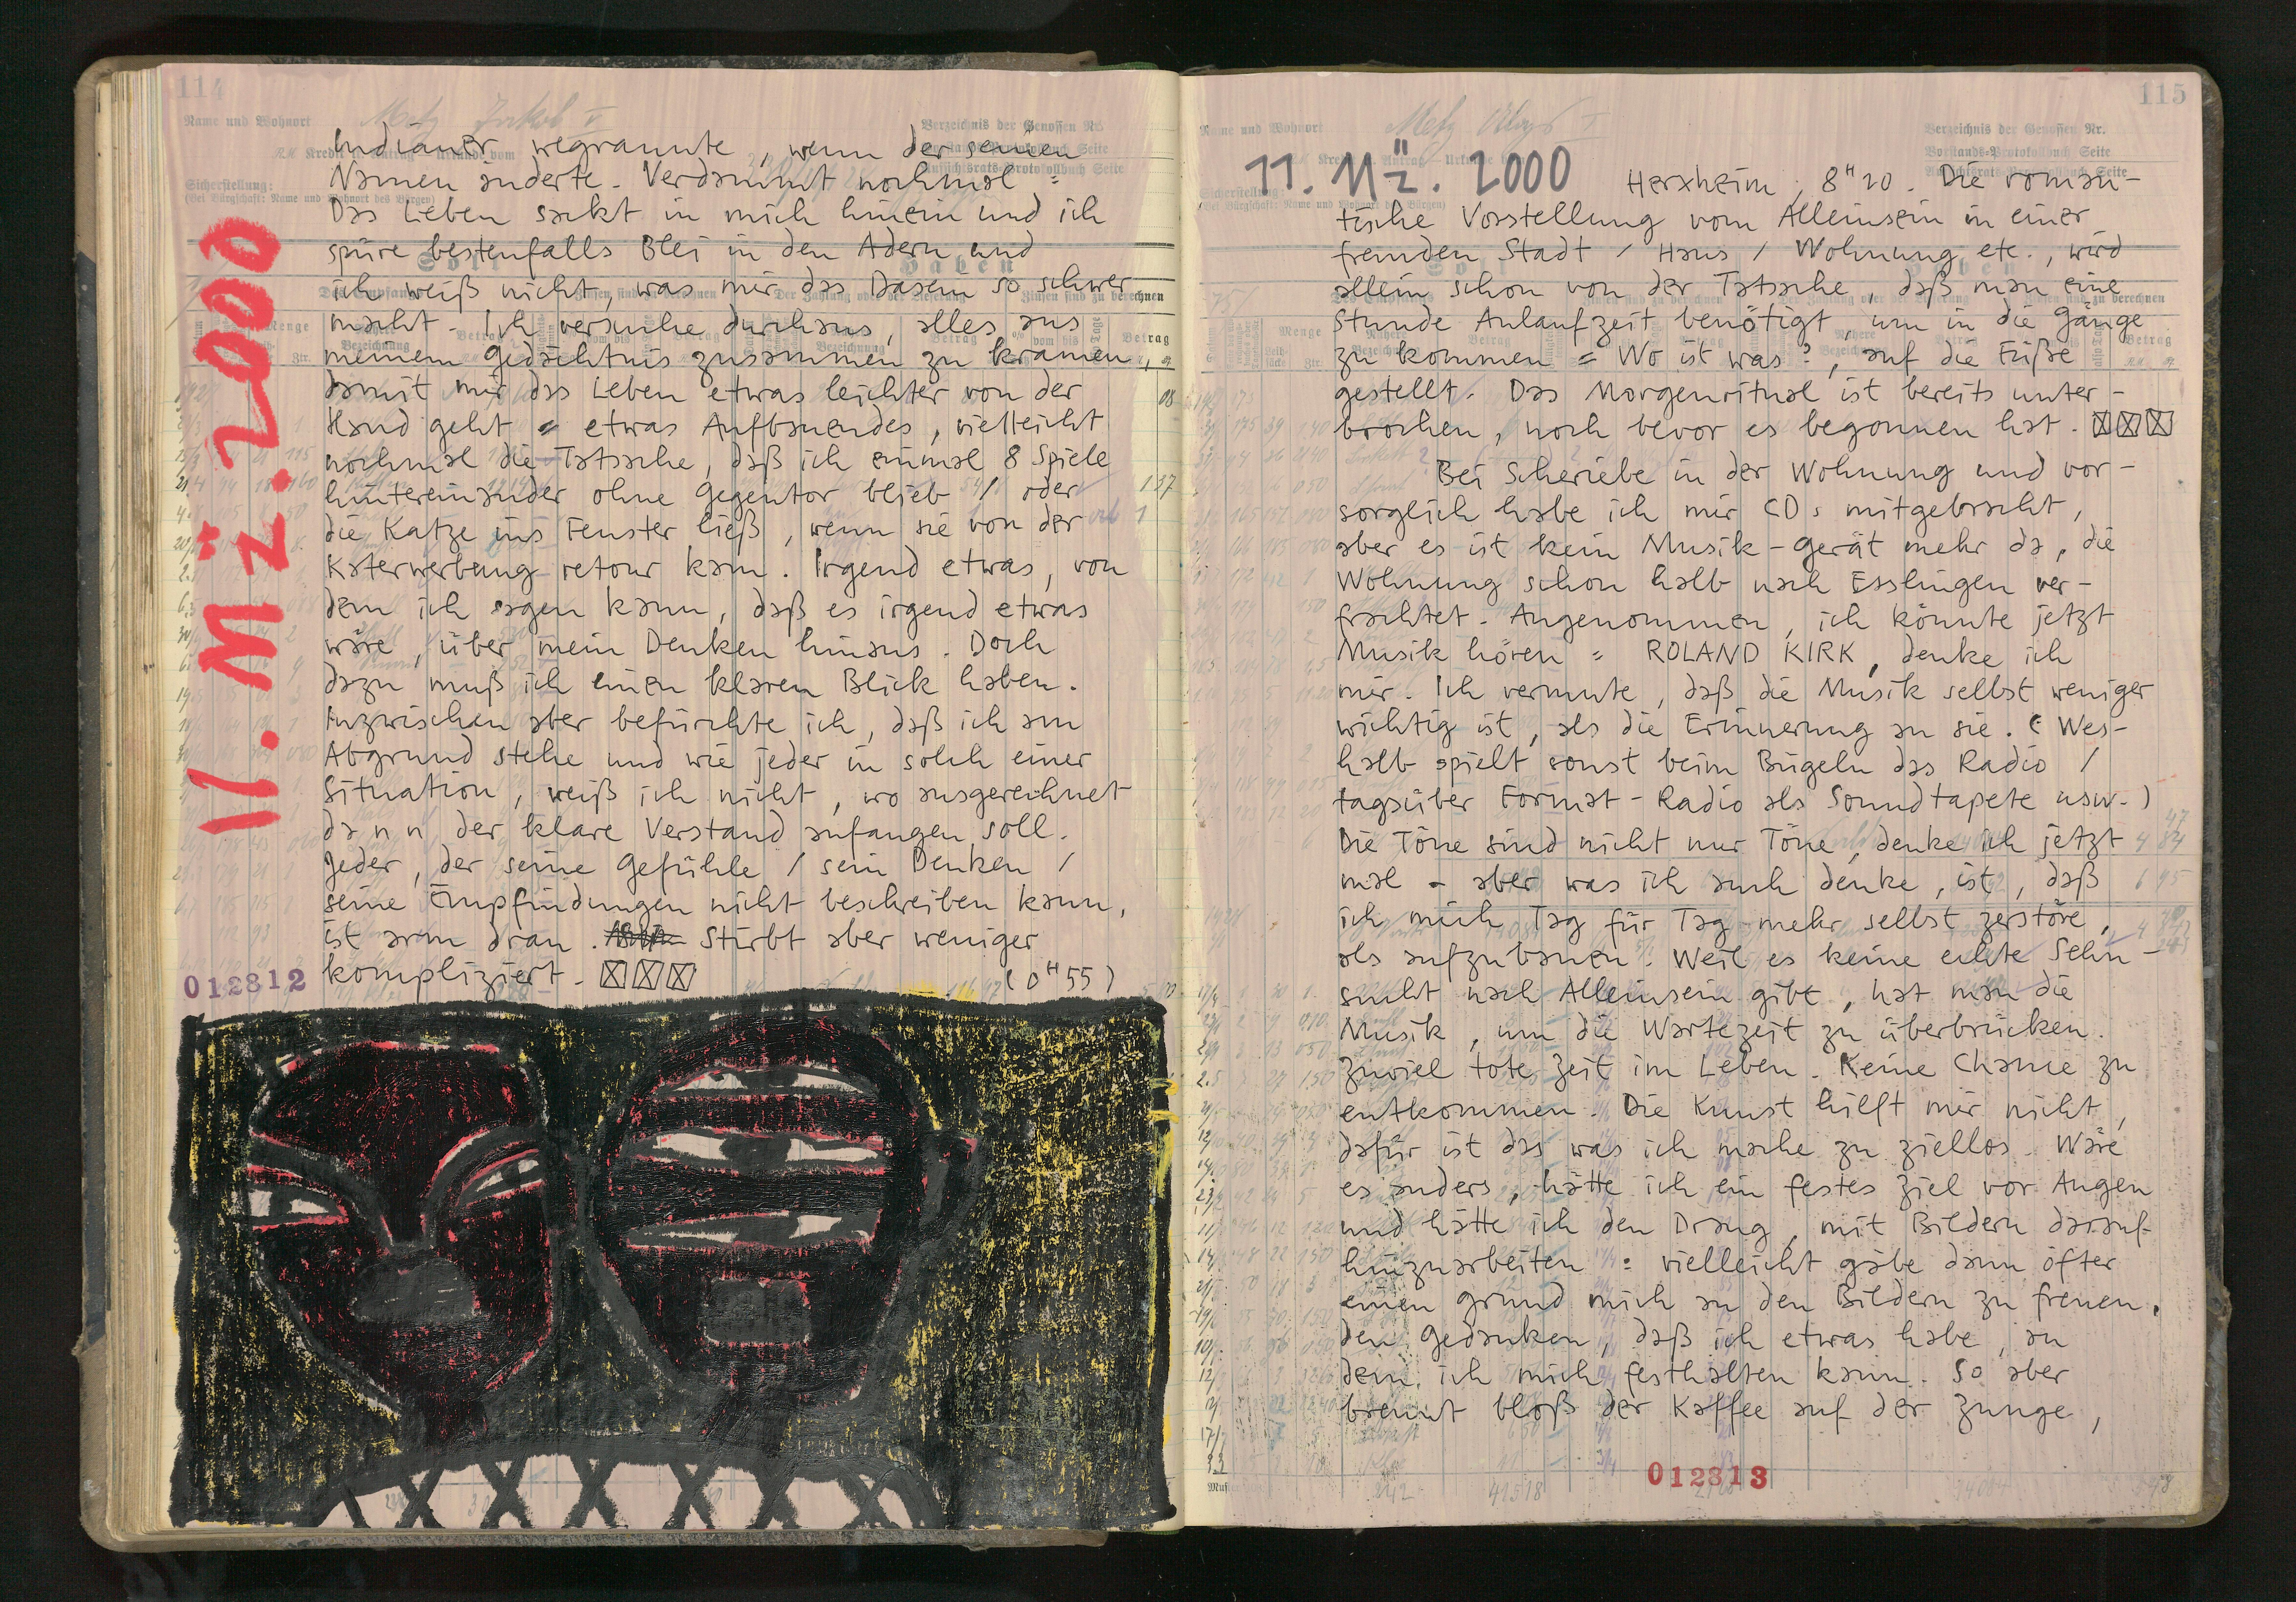 114
Name und Wohnort
Verzeichnis der Genossen Nr.
Indianer wegrannte, wenn der seinen
Namen änderte. Verdammt nochmal =
Das Leben sackt in mich hinein und ich
spüre bestenfalls Blei in den Adern und
ich weiß nicht, was mir das Dasein so schwer
macht. Ich versuche durchaus, alles aus
meinem Gedächtnis zusammen zu kramen,
damit mir das Leben etwas leichter von der
Hand geht = etwas Aufbauendes, vielleicht
nochmal die Tatsache, daß ich einmal 8 Spiele
hintereinander ohne Gegentor blieb / oder
die Katze ins Fenster ließ, wenn sie von der
Katerwerbung retour kam. Irgend etwas, von
dem ich sagen kann, daß es irgend etwas
wäre, über mein Denken hinaus. Doch
dazu muß ich einen klaren Blick haben.
Inzwischen aber befürchte ich, daß ich am
Abgrund stehe und wie jeder in solch einer
Situation, weiß ich nicht, wo ausgerechnet
dann der klare Verstand anfangen soll.
Jeder, der seine Gefühle / sein Denken /
seine Empfindungen nicht beschreiben kann,
ist arm dran. Stirbt aber weniger
kompliziert. ☒☒☒ (0H55)
11. Mz. 2000
012812
115
Name und Wohnort
Verzeichnis der Genossen Nr.
Vorstands-Protokollbuch Seite
11. Mz. 2000 Herxheim, 8H20. Die roman-
tische Vorstellung vom Alleinsein in einer
fremden Stadt / Haus / Wohnung etc., wird
allein schon von der Tatsache, daß man eine
Stunde Anlaufzeit benötigt, um in die Gänge
zu kommen = Wo ist was?, auf die Füße
gestellt. Das Morgenritual ist bereits unter-
brochen, noch bevor es begonnen hat. ☒☒☒
Bei Scheriebe in der Wohnung und vor-
sorglich habe ich mir CDs mitgebracht,
aber es ist kein Musik-Gerät mehr da, die
Wohnung schon halb nach Esslingen ver-
frachtet. Angenommen, ich könnte jetzt
Musik hören = ROLAND KIRK, denke ich
mir. Ich vermute, daß die Musik selbst weniger
wichtig ist, als die Erinnerung an sie. (Wes-
halb spielt sonst beim Bügeln das Radio /
tagsüber Format-Radio als Soundtapete usw.)
Die Töne sind nicht nur Töne, denke ich jetzt
mal - aber was ich auch denke, ist, daß
ich mich Tag für Tag mehr selbst zerstöre,
als aufzubauen. Weil es keine echte Sehn-
sucht nach Alleinsein gibt, hat man die
Musik, um die Wartezeit zu überbrücken.
Zuviel tote Zeit im Leben. Keine Chance zu
entkommen. Die Kunst hilft mir nicht,
dafür ist das was ich mache zu ziellos. Wäre
es anders, hätte ich ein festes Ziel vor Augen
und hätte ich den Drang, mit Bildern darauf-
hinzuarbeiten = vielleicht gäbe dann öfter
einen Grund mich an den Bildern zu freuen,
den Gedanken, daß ich etwas habe, an
dem ich mich festhalten kann. So aber
brennt bloß der Kaffee auf der Zunge,
012813